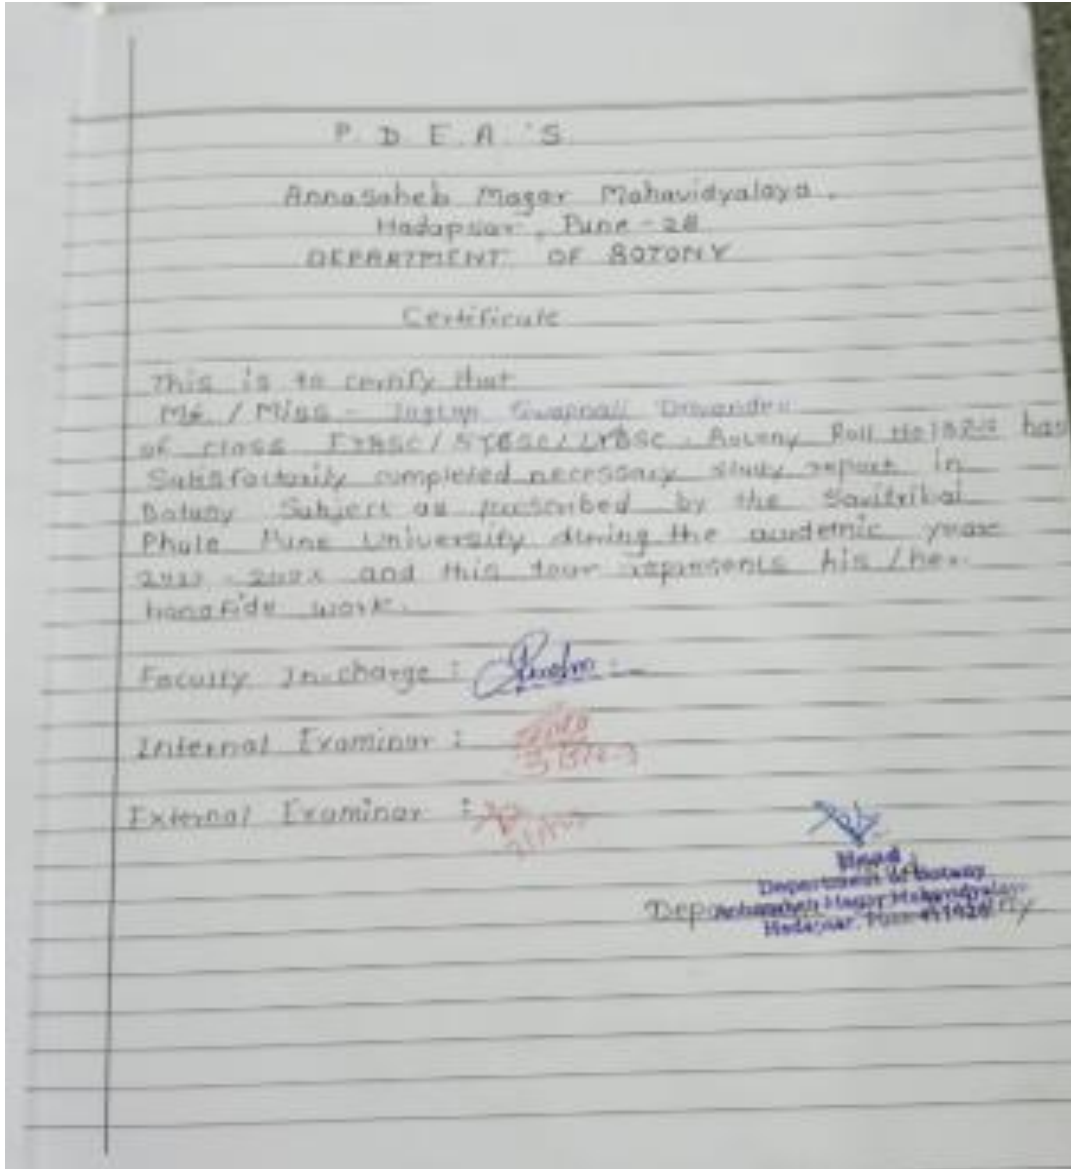 P. D. E. A.'S.
Annasaheb Magar Mahavidyalaya.
Hadapsar, Pune-28
DEPARTMENT OF BOTONY
Certificate
This is to certify that
/ Miss - Swapnali
of class FYBSC / SYBSC / TYBSC. Roll No has
Satisfactorily completed necessary study report in
Botany Subject as prescribed by the Savitribai
Phule Pune University during the academic year
and this tour represents his / her
bonafide work.
Faculty In-charge :
Internal Examinar :
External Examinar :
Head
Department of Botany
Annasaheb Magar Mahavidyalaya
Hadapsar, Pune